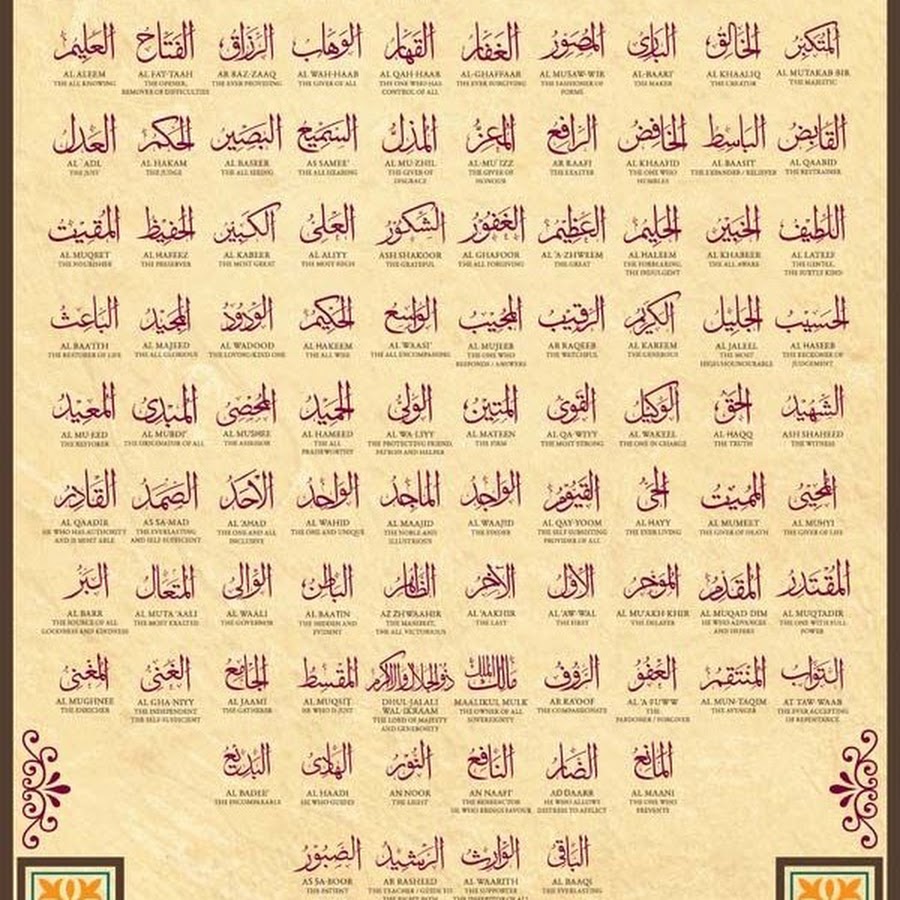 المتكبر
AL MUTAKAB BIR
THE MAJESTIC
الخالق
AL KHAALIQ
THE CREATOR
البارئ
AL BAARI'
THE MAKER
المصور
AL MUSAW-WIR
THE FASHIONER OF
FORMS
الغفار
AL-GHAFFAAR
THE EVER FORGIVING
القهار
AL QAH-HAAR
THE ONE WHO HAS
CONTROL OF ALL
الوهاب
AL WAH-HAAB
THE GIVER OF ALL
الرزاق
AR RAZ-ZAAQ
THE EVER PROVIDING
الفتاح
AL FAT-TAAH
THE OPENER,
REMOVER OF DIFFICULTIES
العليم
AL ALEEM
THE ALL KNOWING
القابض
AL QAABID
THE RESTRAINER
الباسط
AL BAASIT
THE EXPANDER / RELIEVER
الخافض
AL KHAAFID
THE ONE WHO
HUMBLES
الرافع
AR RAAFI
THE EXALTER
المعز
AL-MU'IZZ
THE GIVER OF
HONOUR
المذل
AL MU-ZHIL
THE GIVER OF
DISGRACE
السميع
AS SAMEE'
THE ALL HEARING
البصير
AL BASEER
THE ALL SEEING
الحكم
AL HAKAM
THE JUDGE
العدل
AL `ADL
THE JUST
اللطيف
AL LATEEF
THE GENTLE,
THE SUBTLY KIND
الخبير
AL KHABEER
THE ALL AWARE
الحليم
AL HALEEM
THE FORBEARING,
THE INDULGENT
العظيم
AL 'A-ZHWEEM
THE GREAT
الغفور
AL GHAFOOR
THE ALL FORGIVING
الشكور
ASH SHAKOOR
THE GRATEFUL
العلي
AL ALIYY
THE MOST HIGH
الكبير
AL KABEER
THE MOST GREAT
الحفيظ
AL HAFEEZ
THE PRESERVER
المقيت
AL MUQEET
THE NOURISHER
الحسيب
AL HASEEB
THE RECKONER OF
JUDGEMENT
الجليل
AL JALEEL
THE MOST
HIGH/HONOURABLE
الكريم
AL KAREEM
THE GENEROUS
الرقيب
AR RAQEEB
THE WATCHFUL
المجيب
AL MUJEEB
THE ONE WHO
RESPONDS / ANSWERS
الواسع
AL WAASI'
THE ALL ENCOMPASSING
الحكيم
AL HAKEEM
THE ALL WISE
الودود
AL WADOOD
THE LOVING/KIND ONE
المجيد
AL MAJEED
THE ALL GLORIOUS
الباعث
AL BAA'ITH
THE RESTORER OF LIFE
الشهيد
ASH SHAHEED
THE WITNESS
الحق
AL-HAQQ
THE TRUTH
الوكيل
AL WAKEEL
THE ONE IN CHARGE
القوي
AL QA-WIYY
THE MOST STRONG
المتين
AL MATEEN
THE FIRM
الولي
AL WA-LIYY
THE PROTECTING FRIEND,
PATRON AND HELPER
الحميد
AL HAMEED
THE ALL
PRAISEWORTHY
المحصي
AL MUHSEE
THE ASSESSOR
المبدئ
AL MUBDI'
THE ORIGINATOR OF ALL
المعيد
AL MU-EED
THE RESTORER
المحيي
AL MUHYI
THE GIVER OF LIFE
المميت
AL MUMEET
THE GIVER OF DEATH
الحي
AL HAYY
THE EVER LIVING
القيوم
AL QAY-YOOM
THE SELF SUBSISTING
PROVIDER OF ALL
الواجد
AL WAAJID
THE FINDER
الماجد
AL MAAJID
THE NOBLE AND
ILLUSTRIOUS
الواحد
AL WAHID
THE ONE AND UNIQUE
الاحد
AL 'AHAD
THE ONE AND ALL
INCLUSIVE
الصمد
AS SA-MAD
THE EVERLASTING
AND SELF SUFFICIENT
القادر
AL QAADIR
HE WHO HAS AUTHORITY
AND IS MOST ABLE
المقتدر
AL MUQTADIR
THE ONE WITH FULL
POWER
المقدم
AL MUQAD DIM
HE WHO ADVANCES
AND OFFERS
المؤخر
AL MU'AKH KHIR
THE DELAYER
الاول
AL 'AW-WAL
THE FIRST
الآخر
AL 'AAKHIR
THE LAST
الظاهر
AZ ZHWAAHIR
THE MANIFEST,
THE ALL VICTORIOUS
الباطن
AL BAATIN
THE HIDDEN AND
EVIDENT
الوالي
AL WAALI
THE GOVERNOR
المتعال
AL MUTA 'AALI
THE MOST EXALTED
البر
AL BARR
THE SOURCE OF ALL
GOODNESS AND KINDNESS
التواب
AT TAW-WAAB
THE EVER ACCEPTING
OF REPENTANCE.
المنتقم
AL MUN-TAQIM
THE AVENGER
العفو
AL 'A-FUWW
THE
PARDONER / FORGIVER
الرؤف
AR RA'OOF
THE COMPASSIONATE
مالك الملك
MAALIKUL MULK
THE OWNER OF ALL
SOVEREIGNTY
ذو الجلال والاكرام
DHUL-JALALI
WAL-IKRAAM
THE LORD OF MAJESTY
AND GENEROSITY
المقسط
AL MUQSIT
HE WHO IS JUST
الجامع
AL JAAMI
THE GATHERER
الغني
AL GHA-NIYY
THE INDEPENDENT
THE SELF-SUFFICIENT
المغني
AL MUGHNEE
THE ENRICHER
المانع
AL MAANI
THE ONE WHO
PREVENTS
الضار
AD DAARR
HE WHO ALLOWS
DISTRESS TO AFFLICT
النافع
AN NAAFI'
THE BENEFACTOR
HE WHO BRINGS FAVOUR
النور
AN NOOR
THE LIGHT
الهادي
AL HAADI
HE WHO GUIDES
البديع
AL BADEE'
THE INCOMPARABLE
الباقي
AL BAAQI
THE EVERLASTING
الوارث
AL WAARITH
THE SUPPORTER
THE INHERITOR OF ALL
الرشيد
AR RASHEED
THE TEACHER / GUIDE TO
THE RIGHT PATH
الصبور
AS SA-BOOR
THE PATIENT